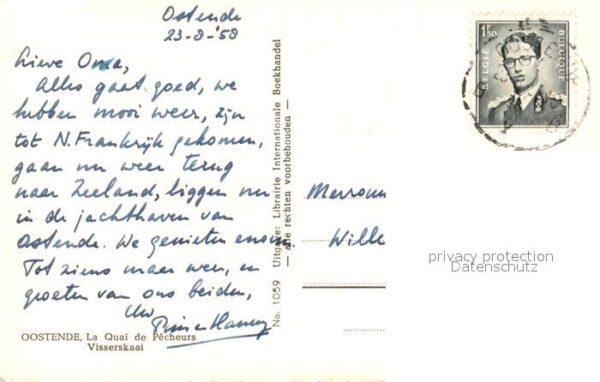 Ostende
23-8-'58
Lieve Oma,
Alles gaat goed, we
hebben mooi weer, zijn
tot N. Frankrijk gekomen,
gaan nu weer terug
naar Zeeland, liggen nu
in de jachthaven van
Ostende. We genieten enorm.
Tot ziens maar weer, en
groeten van ons beiden,
Uw
OOSTENDE, La Quai de Pêcheurs
Visserskaai
No. 1059 Uitgave: Librairie Internationale Boekhandel
— alle rechten voorbehouden —
1F50
BELGIË
BELGIQUE
Mevrouw
Wille
privacy protection
Datenschutz